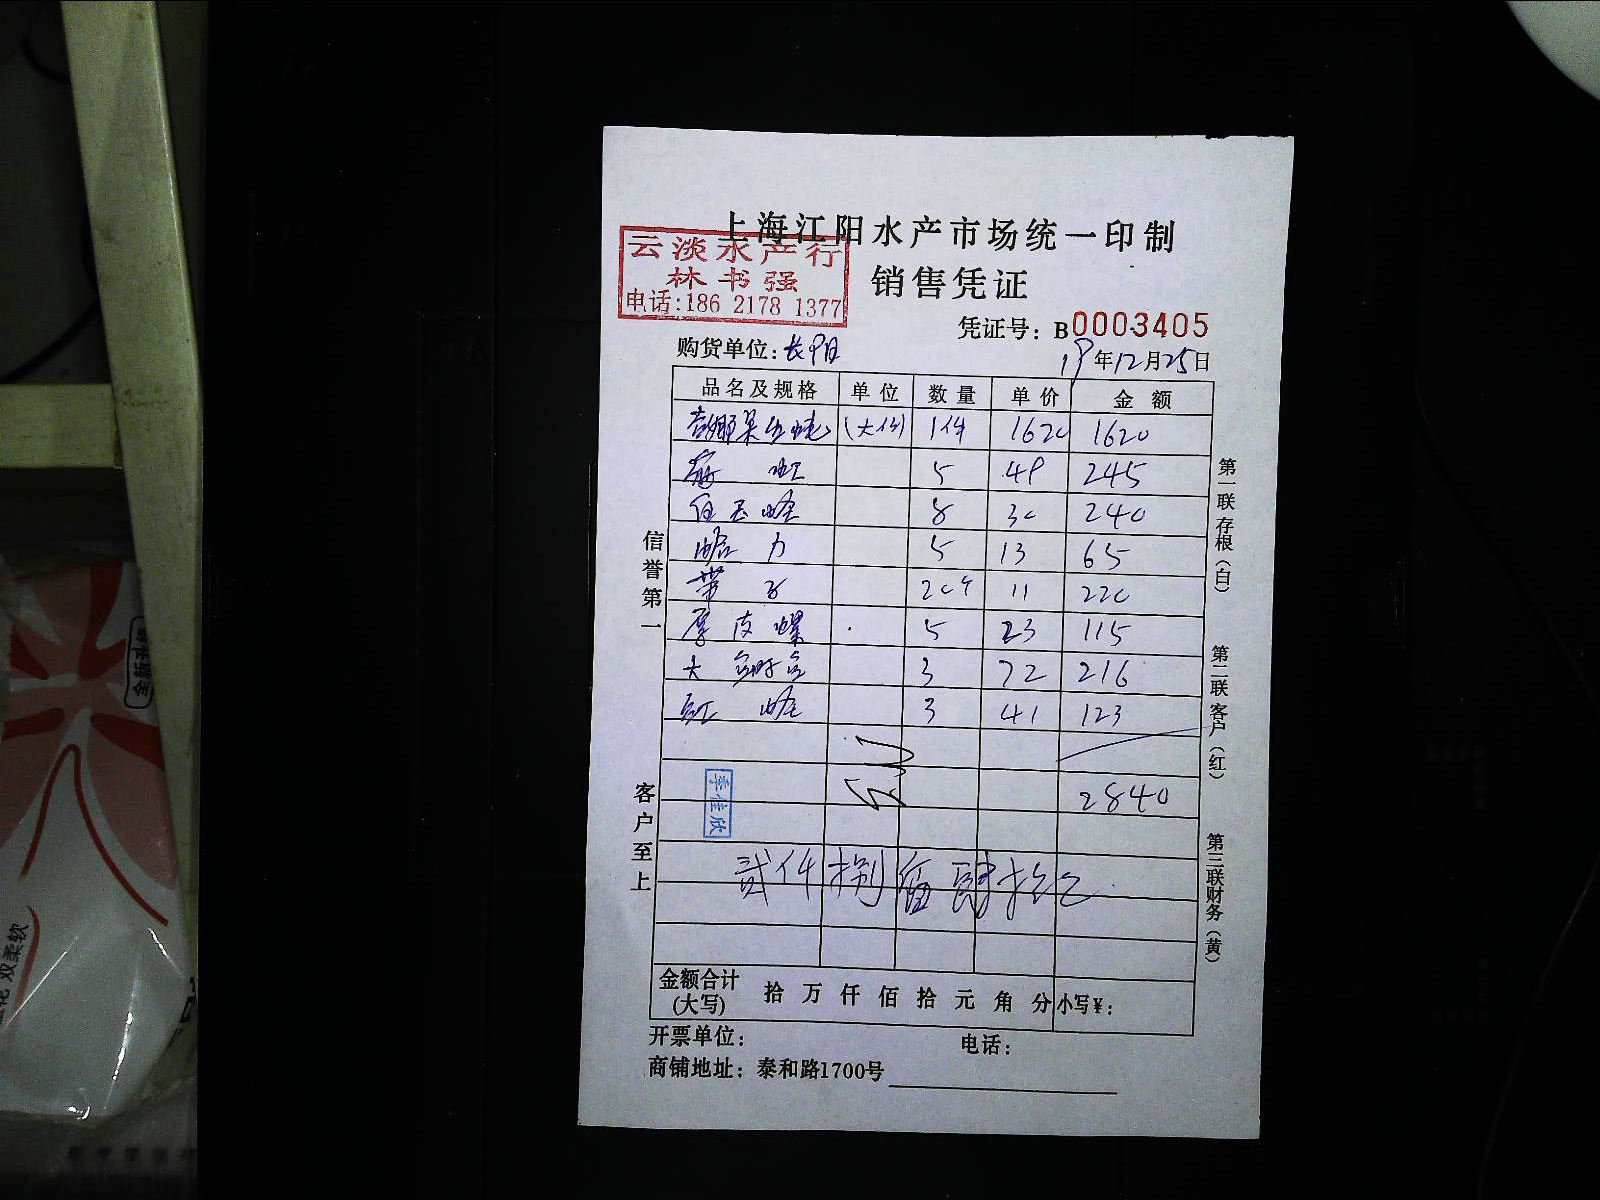 上海江阳水产市场统一印制
云淡水产行
林书强
电话:186 2178 1377
销售凭证
凭证号：B0003405
购货单位：长阳
19年12月25日
品名及规格 单位 数量 单价 金额
(大件) 1件 1620 1620
5 49 245
白玉蛏 8 30 240
蛤力 5 13 65
带子 20个 11 220
厚皮螺 5 23 115
大 3 72 216
红蛏 3 41 123
2840
李佳欣
贰仟捌佰肆拾元
金额合计(大写) 拾 万 仟 佰 拾 元 角 分 小写¥：
开票单位： 电话：
商铺地址：泰和路1700号
信誉第一
客户至上
第一联存根（白）
第二联客户（红）
第三联财务（黄）
全新升级
双柔软